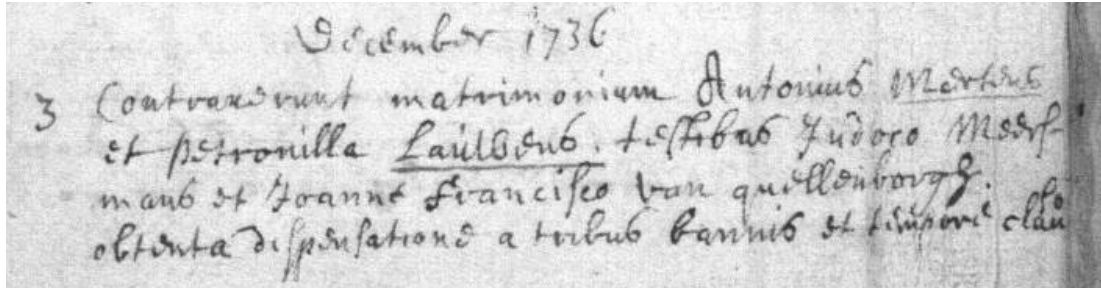 December 1736
3 Contraxerunt matrimonium Antonius Mertens
et Petronilla Lauwens. testibus Judoco Meers-
mans et Joanne Francisco Van quellenborgh.
obtenta dispensatione a tribus bannis et tempore clau
so